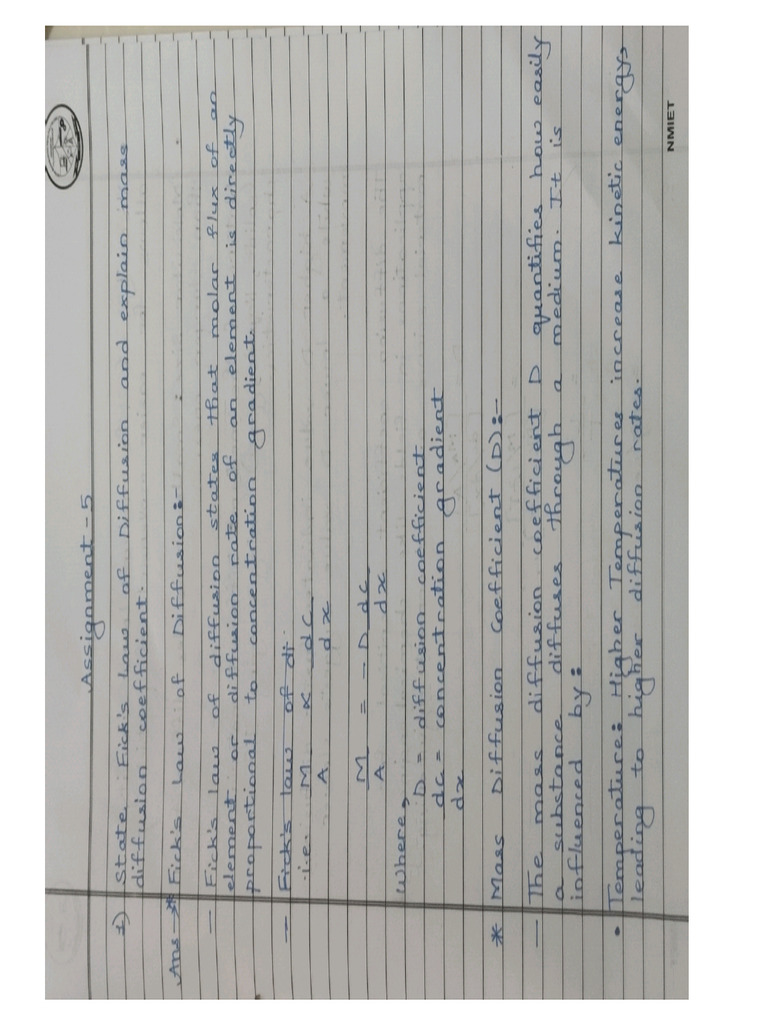 Assignment - 5
1) State Fick's Law of Diffusion and explain mass
diffusion coefficient.
Ans → * Fick's Law of Diffusion:-
— Fick's law of diffusion states that molar flux of an
element or diffusion rate of an element is directly
proportional to concentration gradient.
— Fick's law of di..
i.e. M/A ∝ dc/dx
M/A = - D dc/dx
Where,
D = diffusion coefficient
dc/dx = concentration gradient
* Mass Diffusion Coefficient (D):-
— The mass diffusion coefficient D quantifies how easily
a substance diffuses through a medium. It is
influenced by:
• Temperature: Higher Temperatures increase kinetic energy,
leading to higher diffusion rates.
NMIET